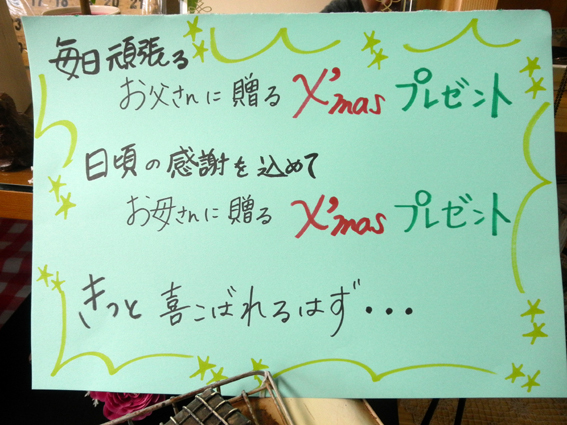 毎日頑張る
お父さんに贈る X'mas プレゼント
日頃の感謝を込めて
お母さんに贈る X'mas プレゼント
きっと喜こばれるはず・・・